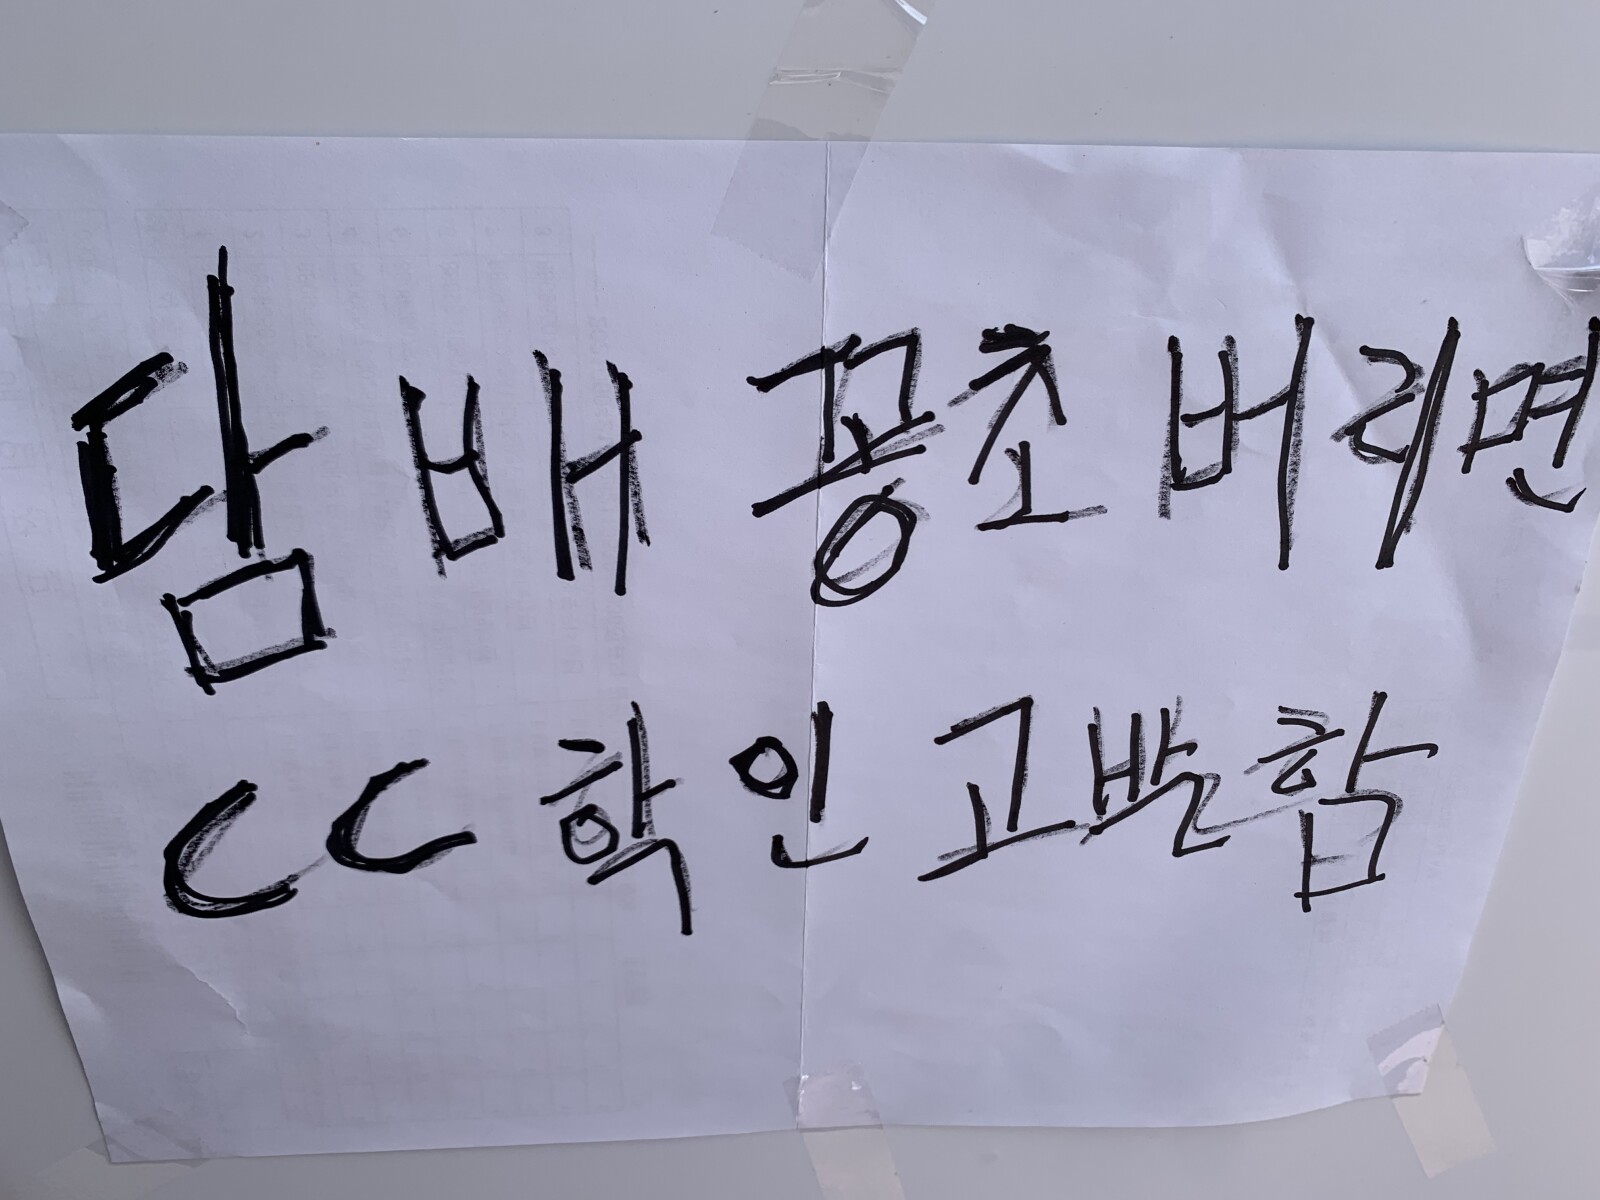 담배 꽁초 버리면
CC 학인 고발함